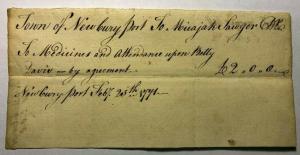 Town of Newbury Port To Micajah Sawyer
To Medicines and Attendance upon Betty
Davis - by agreement - £2..0..0
Newbury Port Feby. 25th. 1791.